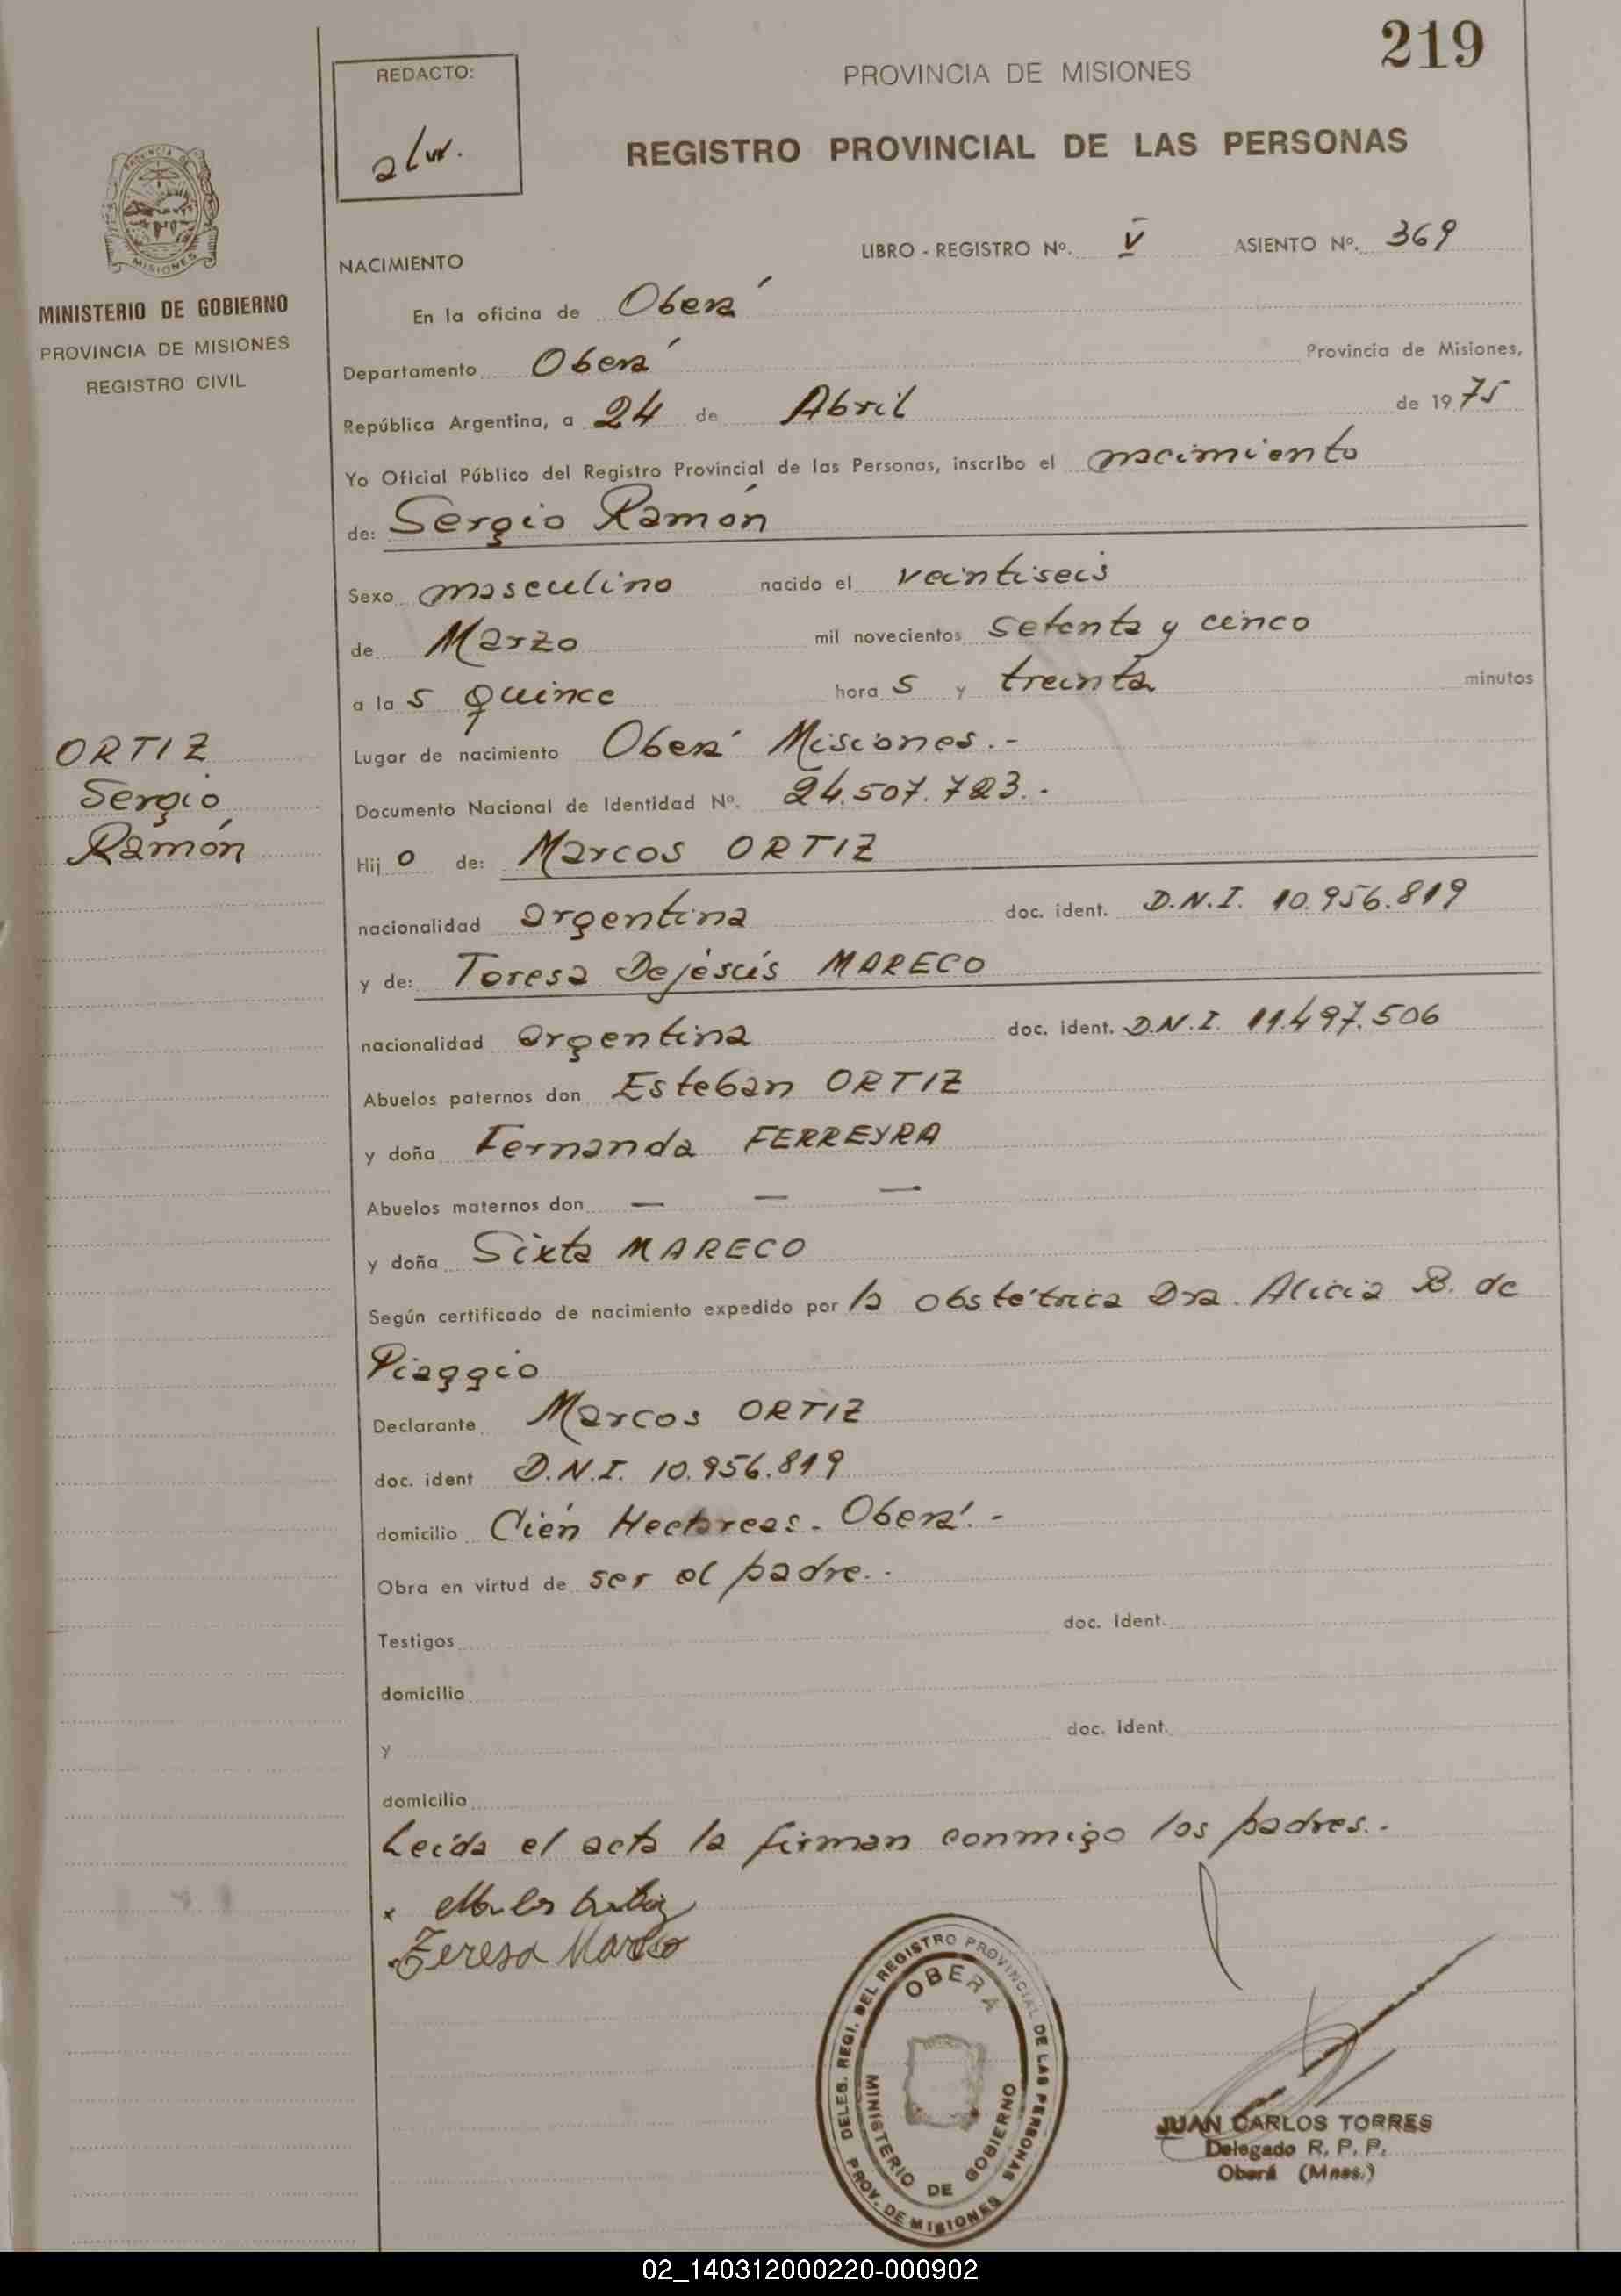 219
REDACTO:
PROVINCIA DE MISIONES
REGISTRO PROVINCIAL DE LAS PERSONAS
PROVINCIA DE
MISIONES
MINISTERIO DE GOBIERNO
PROVINCIA DE MISIONES
REGISTRO CIVIL
NACIMIENTO LIBRO - REGISTRO Nº. V ASIENTO Nº. 369
En la oficina de Oberá
Departamento Oberá Provincia de Misiones,
República Argentina, a 24 de Abril de 1975
Yo Oficial Público del Registro Provincial de las Personas, inscribo el nacimiento
de: Sergio Ramón
Sexo masculino nacido el veintiseis
de Marzo mil novecientos setenta y cinco
a las quince horas y treinta minutos
ORTIZ
Sergio
Ramón
Lugar de nacimiento Oberá Misiones.-
Documento Nacional de Identidad Nº. 24.507.723.-
Hijo de: Marcos ORTIZ
nacionalidad argentina doc. ident. D.N.I. 10.956.819
y de: Teresa Dejesús MARECO
nacionalidad argentina doc. ident. D.N.I. 11.497.506
Abuelos paternos don Esteban ORTIZ
y doña Fernanda FERREYRA
Abuelos maternos don — — —
y doña Sixta MARECO
Según certificado de nacimiento expedido por la obstétrica Dra. Alicia B. de
Piaggio
Declarante Marcos ORTIZ
doc. ident D.N.I. 10.956.819
domicilio Cién Hectáreas - Oberá.-
Obra en virtud de ser el padre.-
Testigos doc. ident.
domicilio
y doc. ident.
domicilio
Leída el acta la firman conmigo los padres.-
x
Teresa Mareco
DELEG. REGI. DEL REGISTRO PROVINCIAL DE LAS PERSONAS
OBERA
MINISTERIO DE GOBIERNO
PROV. DE MISIONES
JUAN CARLOS TORRES
Delegado R. P. P.
Oberá (Mnes.)
02_140312000220-000902